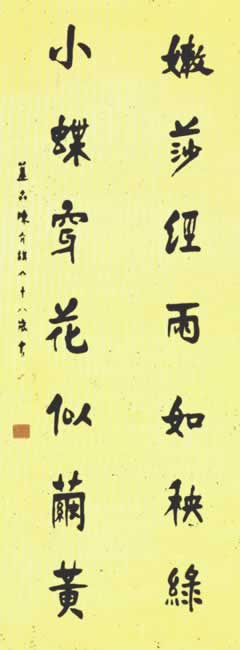 嫩莎經雨如秧綠
小蝶穿花似繭黃
陳介八十八歲書